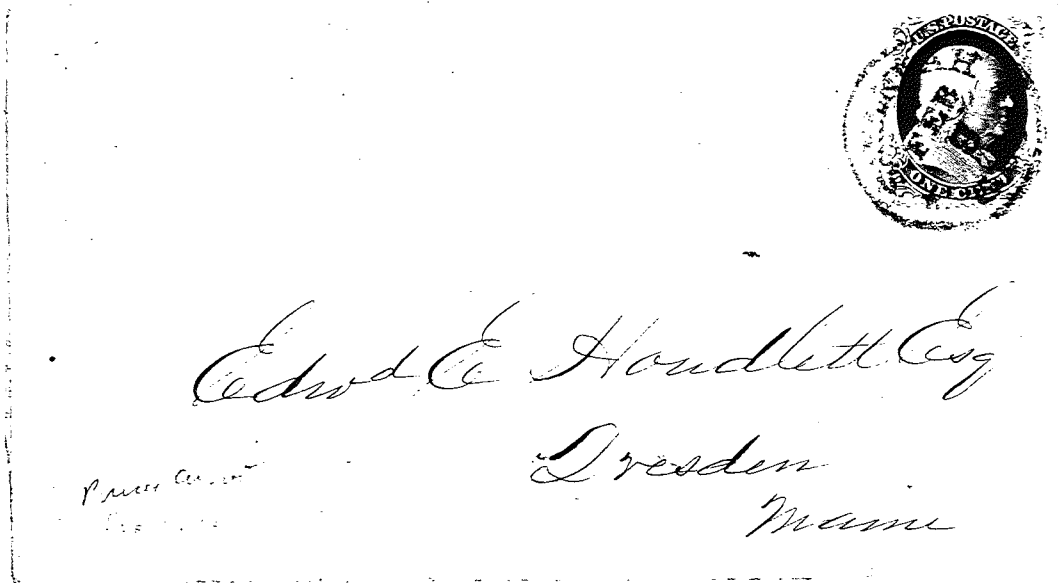 U.S. POSTAGE
AH
FEB
8
ONE CENT
Edwd E Houdlett Esq
Dresden
Maine